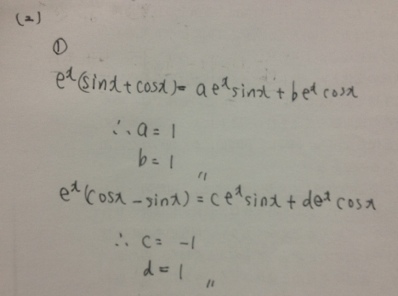 (2)
①
e^x(sinx+cosx)= ae^x sinx + be^x cosx
∴ a = 1
b = 1 〃
e^x(cosx - sinx) = ce^x sinx + de^x cosx
∴ c = -1
d = 1 〃